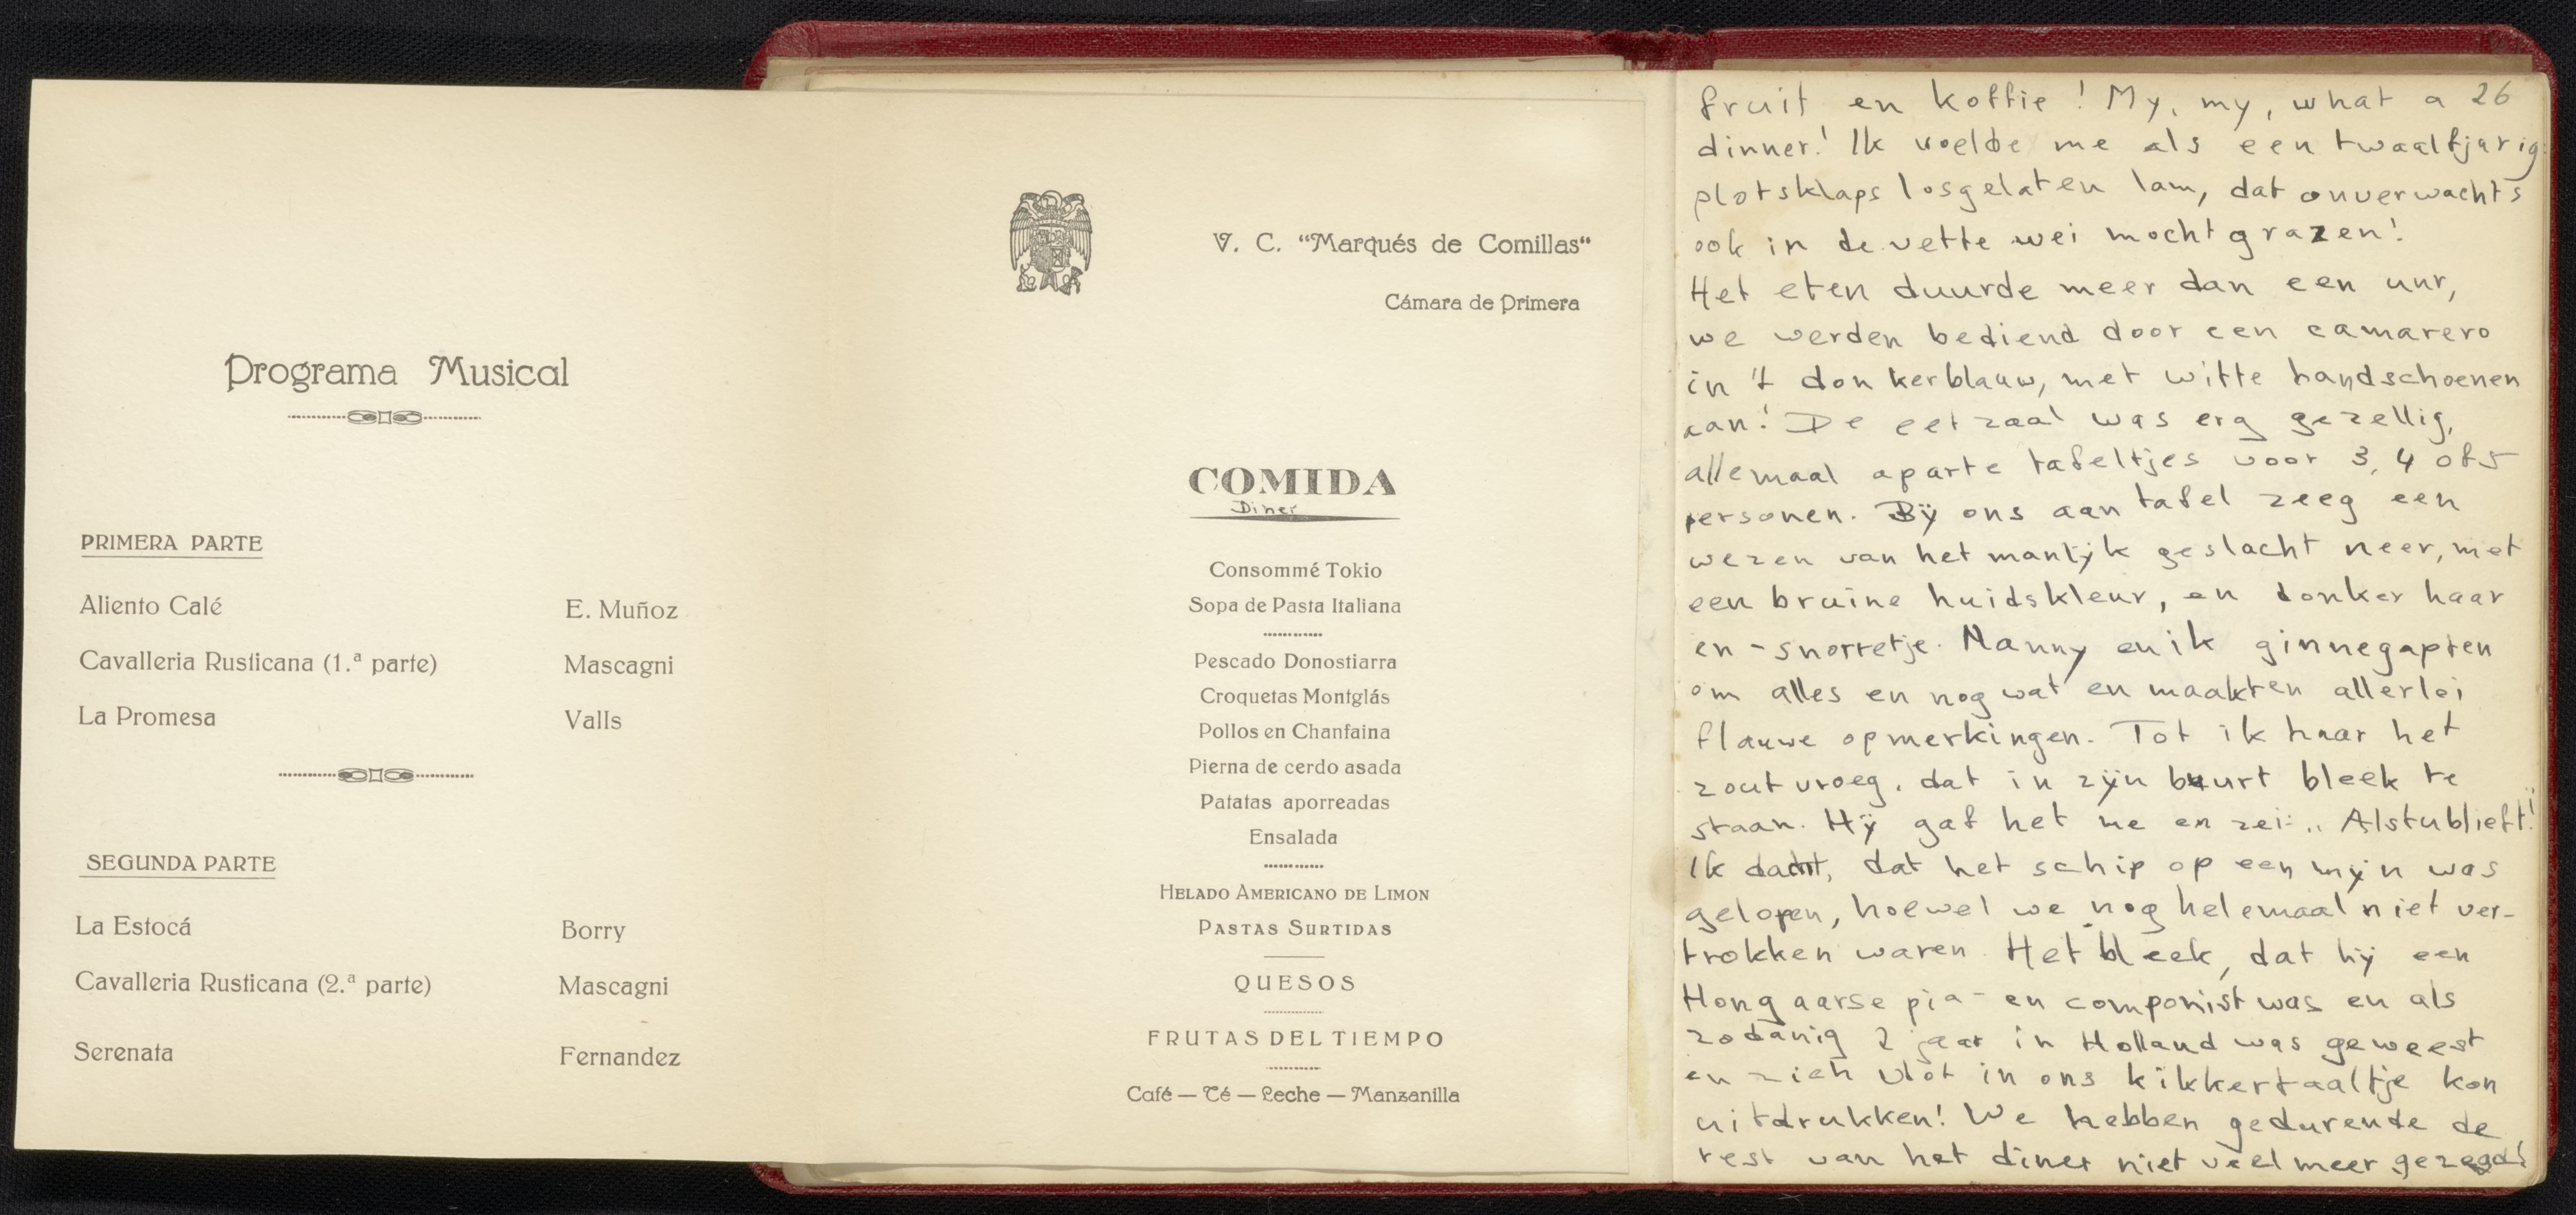 Programa Musical
PRIMERA PARTE
Aliento Calé E. Muñoz
Cavalleria Rusticana (1.ª parte) Mascagni
La Promesa Valls
SEGUNDA PARTE
La Estocá Borry
Cavalleria Rusticana (2.ª parte) Mascagni
Serenata Fernandez
V. C. “Marqués de Comillas“
Cámara de Primera
COMIDA
Diner
Consommé Tokio
Sopa de Pasta Italiana
Pescado Donostiarra
Croquetas Montglás
Pollos en Chanfaina
Pierna de cerdo asada
Patatas aporreadas
Ensalada
HELADO AMERICANO DE LIMON
PASTAS SURTIDAS
QUESOS
FRUTAS DEL TIEMPO
Café — Té — Leche — Manzanilla
fruit en koffie! My, my, what a 26
dinner! Ik voelde me als een twaalfjarig
plotsklaps losgelaten lam, dat onverwachts
ook in de vette wei mocht grazen!
Het eten duurde meer dan een uur,
we werden bediend door een camarero
in 't donkerblauw, met witte handschoenen
aan! De eetzaal was erg gezellig,
allemaal aparte tafeltjes voor 3, 4 of 5
personen. Bij ons aan tafel zeeg een
wezen van het manlijk geslacht neer, met
een bruine huidskleur, en donker haar
en -snorretje. Nanny en ik ginnegapten
om alles en nog wat en maakten allerlei
flauwe opmerkingen. Tot ik haar het
zout vroeg, dat in zijn buurt bleek te
staan. Hij gaf het me en zei: „Alstublieft!"
Ik dacht, dat het schip op een mijn was
gelopen, hoewel we nog helemaal niet ver-
trokken waren. Het bleek, dat hij een
Hongaarse pia- en componist was en als
zodanig 2 jaar in Holland was geweest
en zich vlot in ons kikkertaaltje kon
uitdrukken! We hebben gedurende de
rest van het diner niet veel meer gezegd!